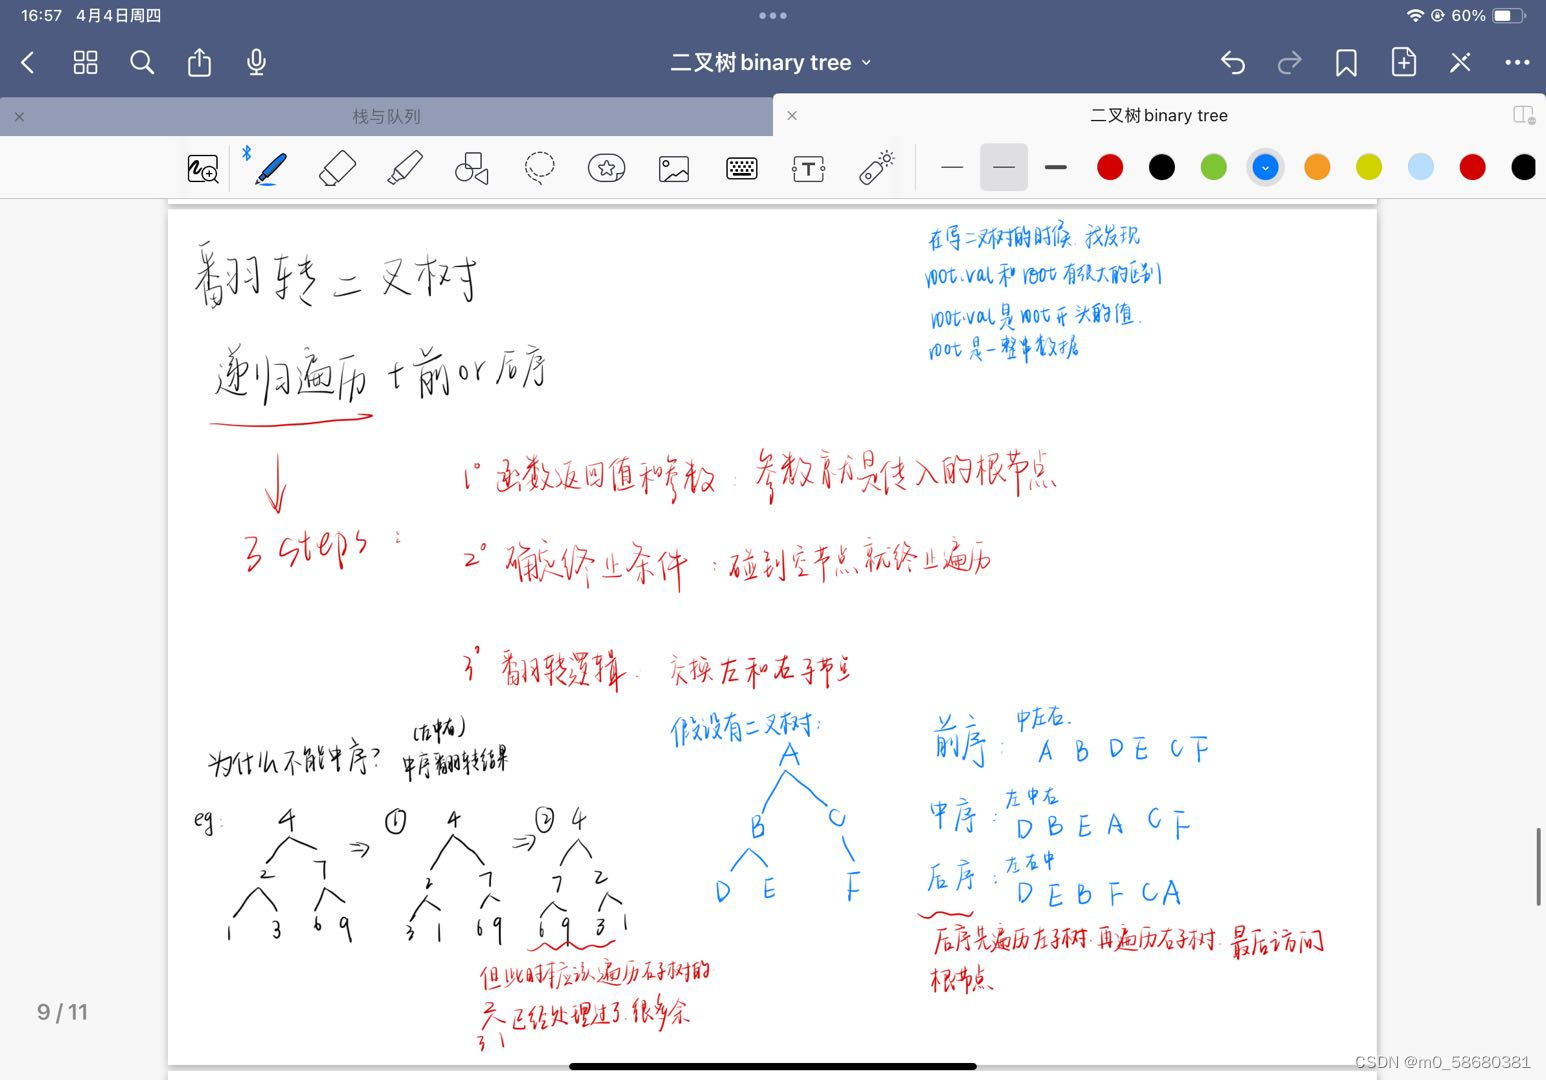 16:57 4月4日周四
60%
二叉树binary tree
栈与队列
二叉树binary tree
翻转二叉树
在写二叉树的时候, 我发现
root.val 和 root 有很大的区别
root.val是 root 开头的值.
root 是一整串数据
递归遍历 + 前or后序
3 steps:
1° 函数返回值和参数: 参数就是传入的根节点
2° 确定终止条件: 碰到空节点就终止遍历
3° 翻转逻辑: 交换左和右子节点
为什么不能中序?
(左中右)
中序翻转结果
eg:
4
2 7
1 3 6 9
⇒
① 4
2 7
3 1 6 9
⇒
② 4
7 2
6 9 3 1
但此时本应该遍历右子树的
3 1
已经处理过了. 很多余
假设有二叉树:
A
B C
D E F
前序: 中左右.
A B D E C F
中序: 左中右
D B E A C F
后序: 左右中
D E B F C A
后序先遍历左子树. 再遍历右子树. 最后访问
根节点
9 / 11
CSDN @m0_58680381